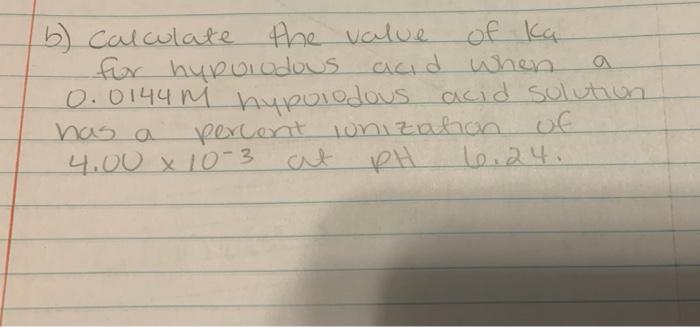 b) Calculate the value of Ka
for hypoiodous acid when a
0.0144M hypoiodous acid solution
has a percent ionization of
4.00 x 10-3 at pH 6.24.